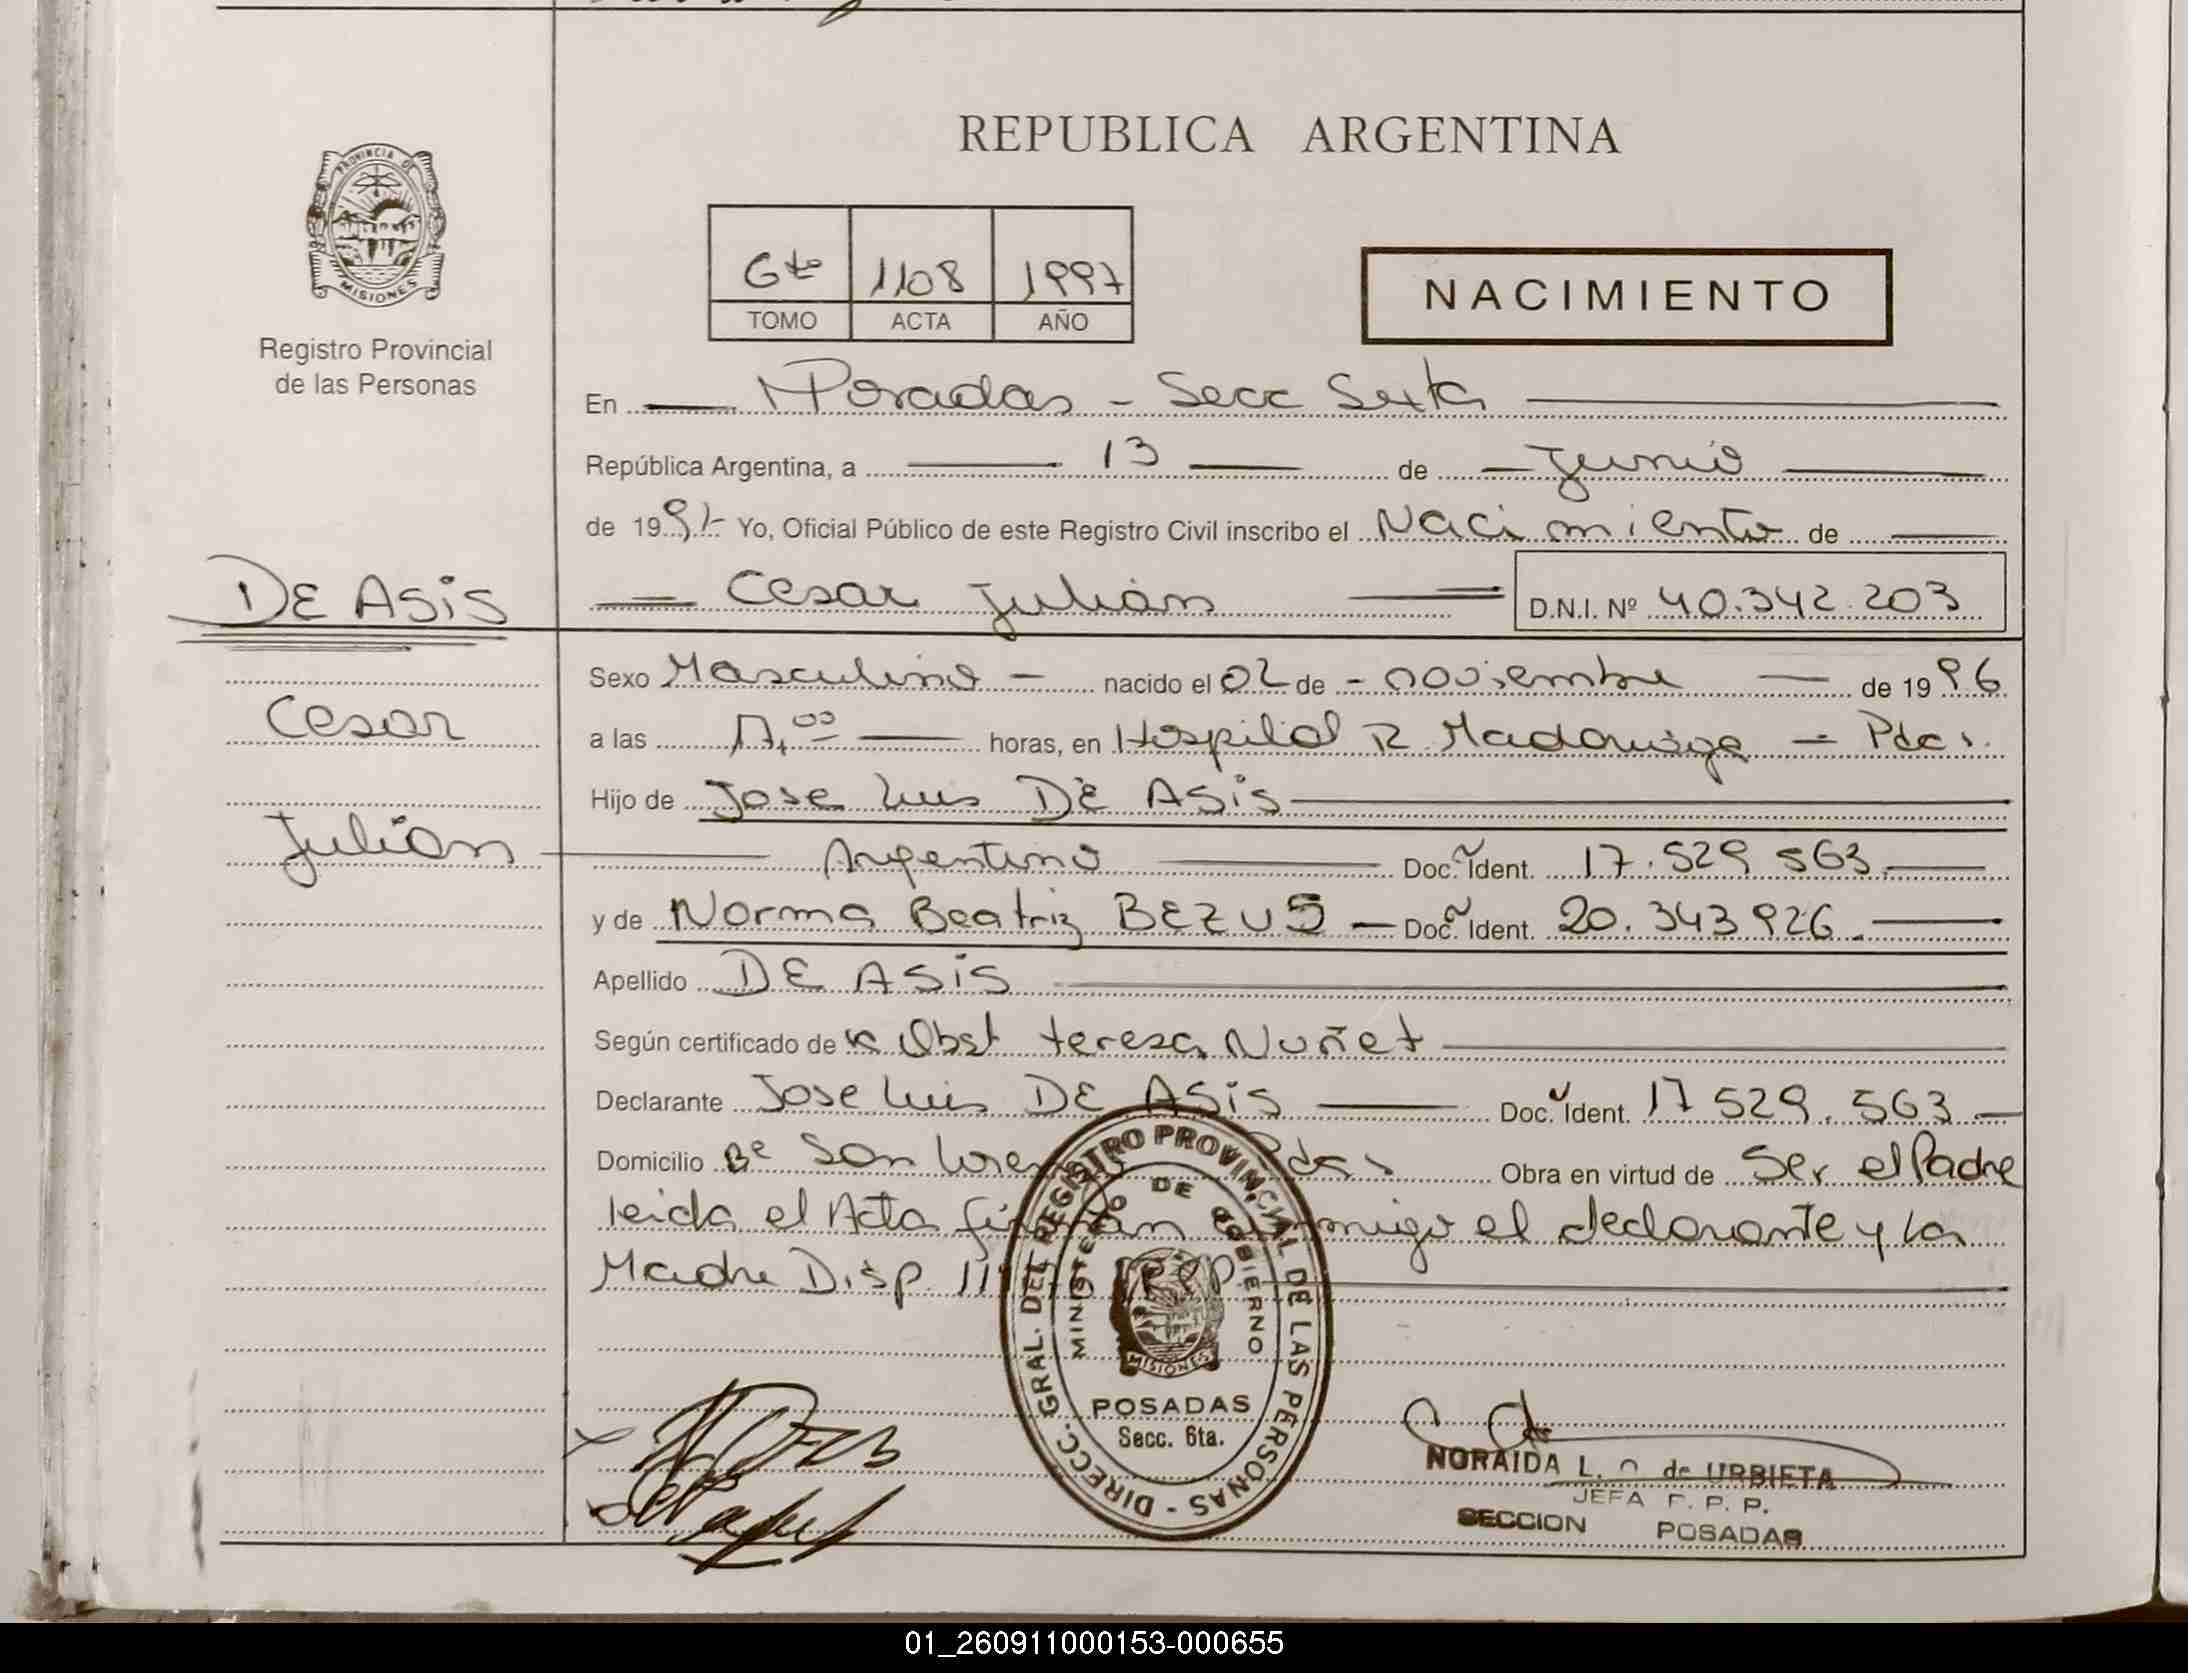 REPUBLICA ARGENTINA
PROVINCIA DE
MISIONES
Registro Provincial
de las Personas
6to 1108 1997
TOMO ACTA AÑO
NACIMIENTO
En Posadas - Secc Sexta
República Argentina, a 13 de Junio
de 1997 Yo, Oficial Público de este Registro Civil inscribo el Nacimiento de
DE ASIS
Cesar Julián D.N.I. Nº 40.342.203
Cesar
Julián
Sexo Masculino - nacido el 02 de - noviembre de 1996
a las horas, en Hospital R. Madariaga - Pdas.
Hijo de Jose Luis DE ASIS
Argentino Doc. Ident. 17.529.563
y de Norma Beatriz BEZUS - Doc. Ident. 20.343.926
Apellido DE ASIS
Según certificado de la Obst teresa Nuñet
Declarante Jose Luis DE ASIS Doc. Ident. 17.529.563
Domicilio Bº San Pdas Obra en virtud de Ser el Padre
leida el Acta firman conmigo el declarante y la
Madre Disp. 11
DIRECC. GRAL. DEL REGISTRO PROVINCIAL DE LAS PERSONAS
MINISTERIO DE GOBIERNO
MISIONES
POSADAS
Secc. 6ta.
NORAIDA L. de URBIETA
JEFA R. P. P.
SECCION POSADAS
01_260911000153-000655